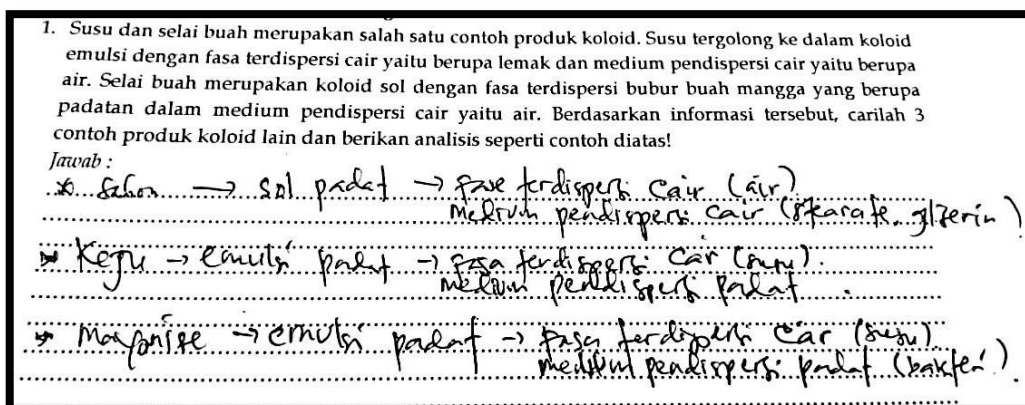 1. Susu dan selai buah merupakan salah satu contoh produk koloid. Susu tergolong ke dalam koloid
emulsi dengan fasa terdispersi cair yaitu berupa lemak dan medium pendispersi cair yaitu berupa
air. Selai buah merupakan koloid sol dengan fasa terdispersi bubur buah mangga yang berupa
padatan dalam medium pendispersi cair yaitu air. Berdasarkan informasi tersebut, carilah 3
contoh produk koloid lain dan berikan analisis seperti contoh diatas!
Jawab :
Sabon → sol padat → fase terdispersi cair (air)
medium pendispersi cair (stearate, glizerin)
Keju → emulsi padat → fasa terdispersi cair (susu).
medium pendispersi padat
→ emulsi padat → fasa terdispersi cair (susu).
medium pendispersi padat (bakteri).